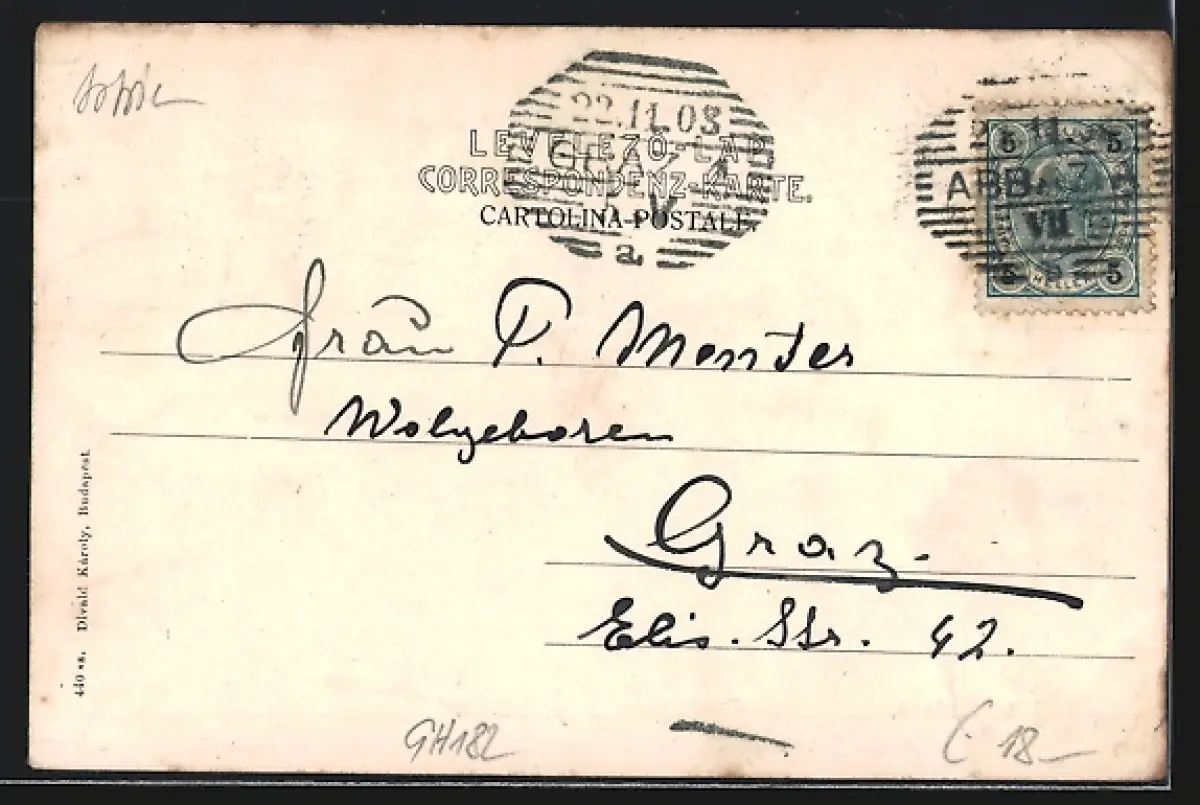 22.11.03
LEVELEZŐ-LAP.
CORRESPONDENZ-KARTE.
CARTOLINA-POSTALE.
GRAZ 1
V
a
5 5
ABBAZIA
VII
5 HELLER 5
Frau P. Monter
Wolgeboren
Graz.
Elis. Str. 42.
440 sz. Divald Károly, Budapest.
GH182
18